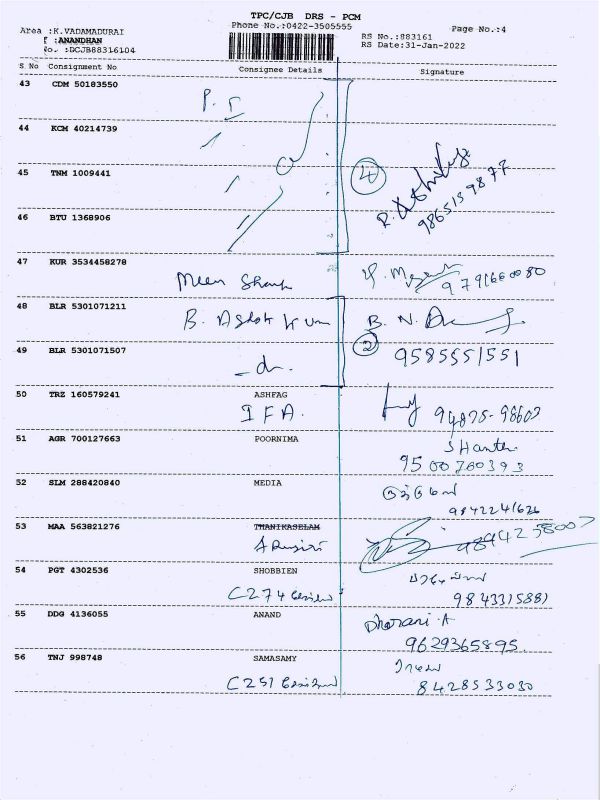 TPC/CJB DRS - PCM
Area :K.VADAMADURAI
Phone No.:0422-3505555
Page No.:4
: ANANDHAN
RS No.:883161
No. :DCJB88316104
RS Date:31-Jan-2022
S.No Consignment No Consignee Details Signature
43 CDM 50183550
44 KCM 40214739
45 TNM 1009441
4
9865139877
46 BTU 1368906
47 KUR 3534458278
48 BLR 5301071211
B. Ashok Kum
B. N.
2
49 BLR 5301071507
9585551551
50 TRZ 160579241 ASHFAG
I F A.
94875-98607
51 AGR 700127663 POORNIMA
Shanthi
9500760393
52 SLM 288420840 MEDIA
9842241626
53 MAA 563821276 THANIKASELAM
54 PGT 4302536 SHOBBIEN
C274
9843315881
55 DDG 4136055 ANAND
Dharani A
9629365895
56 TNJ 998748 SAMASAMY
C251
8428533030